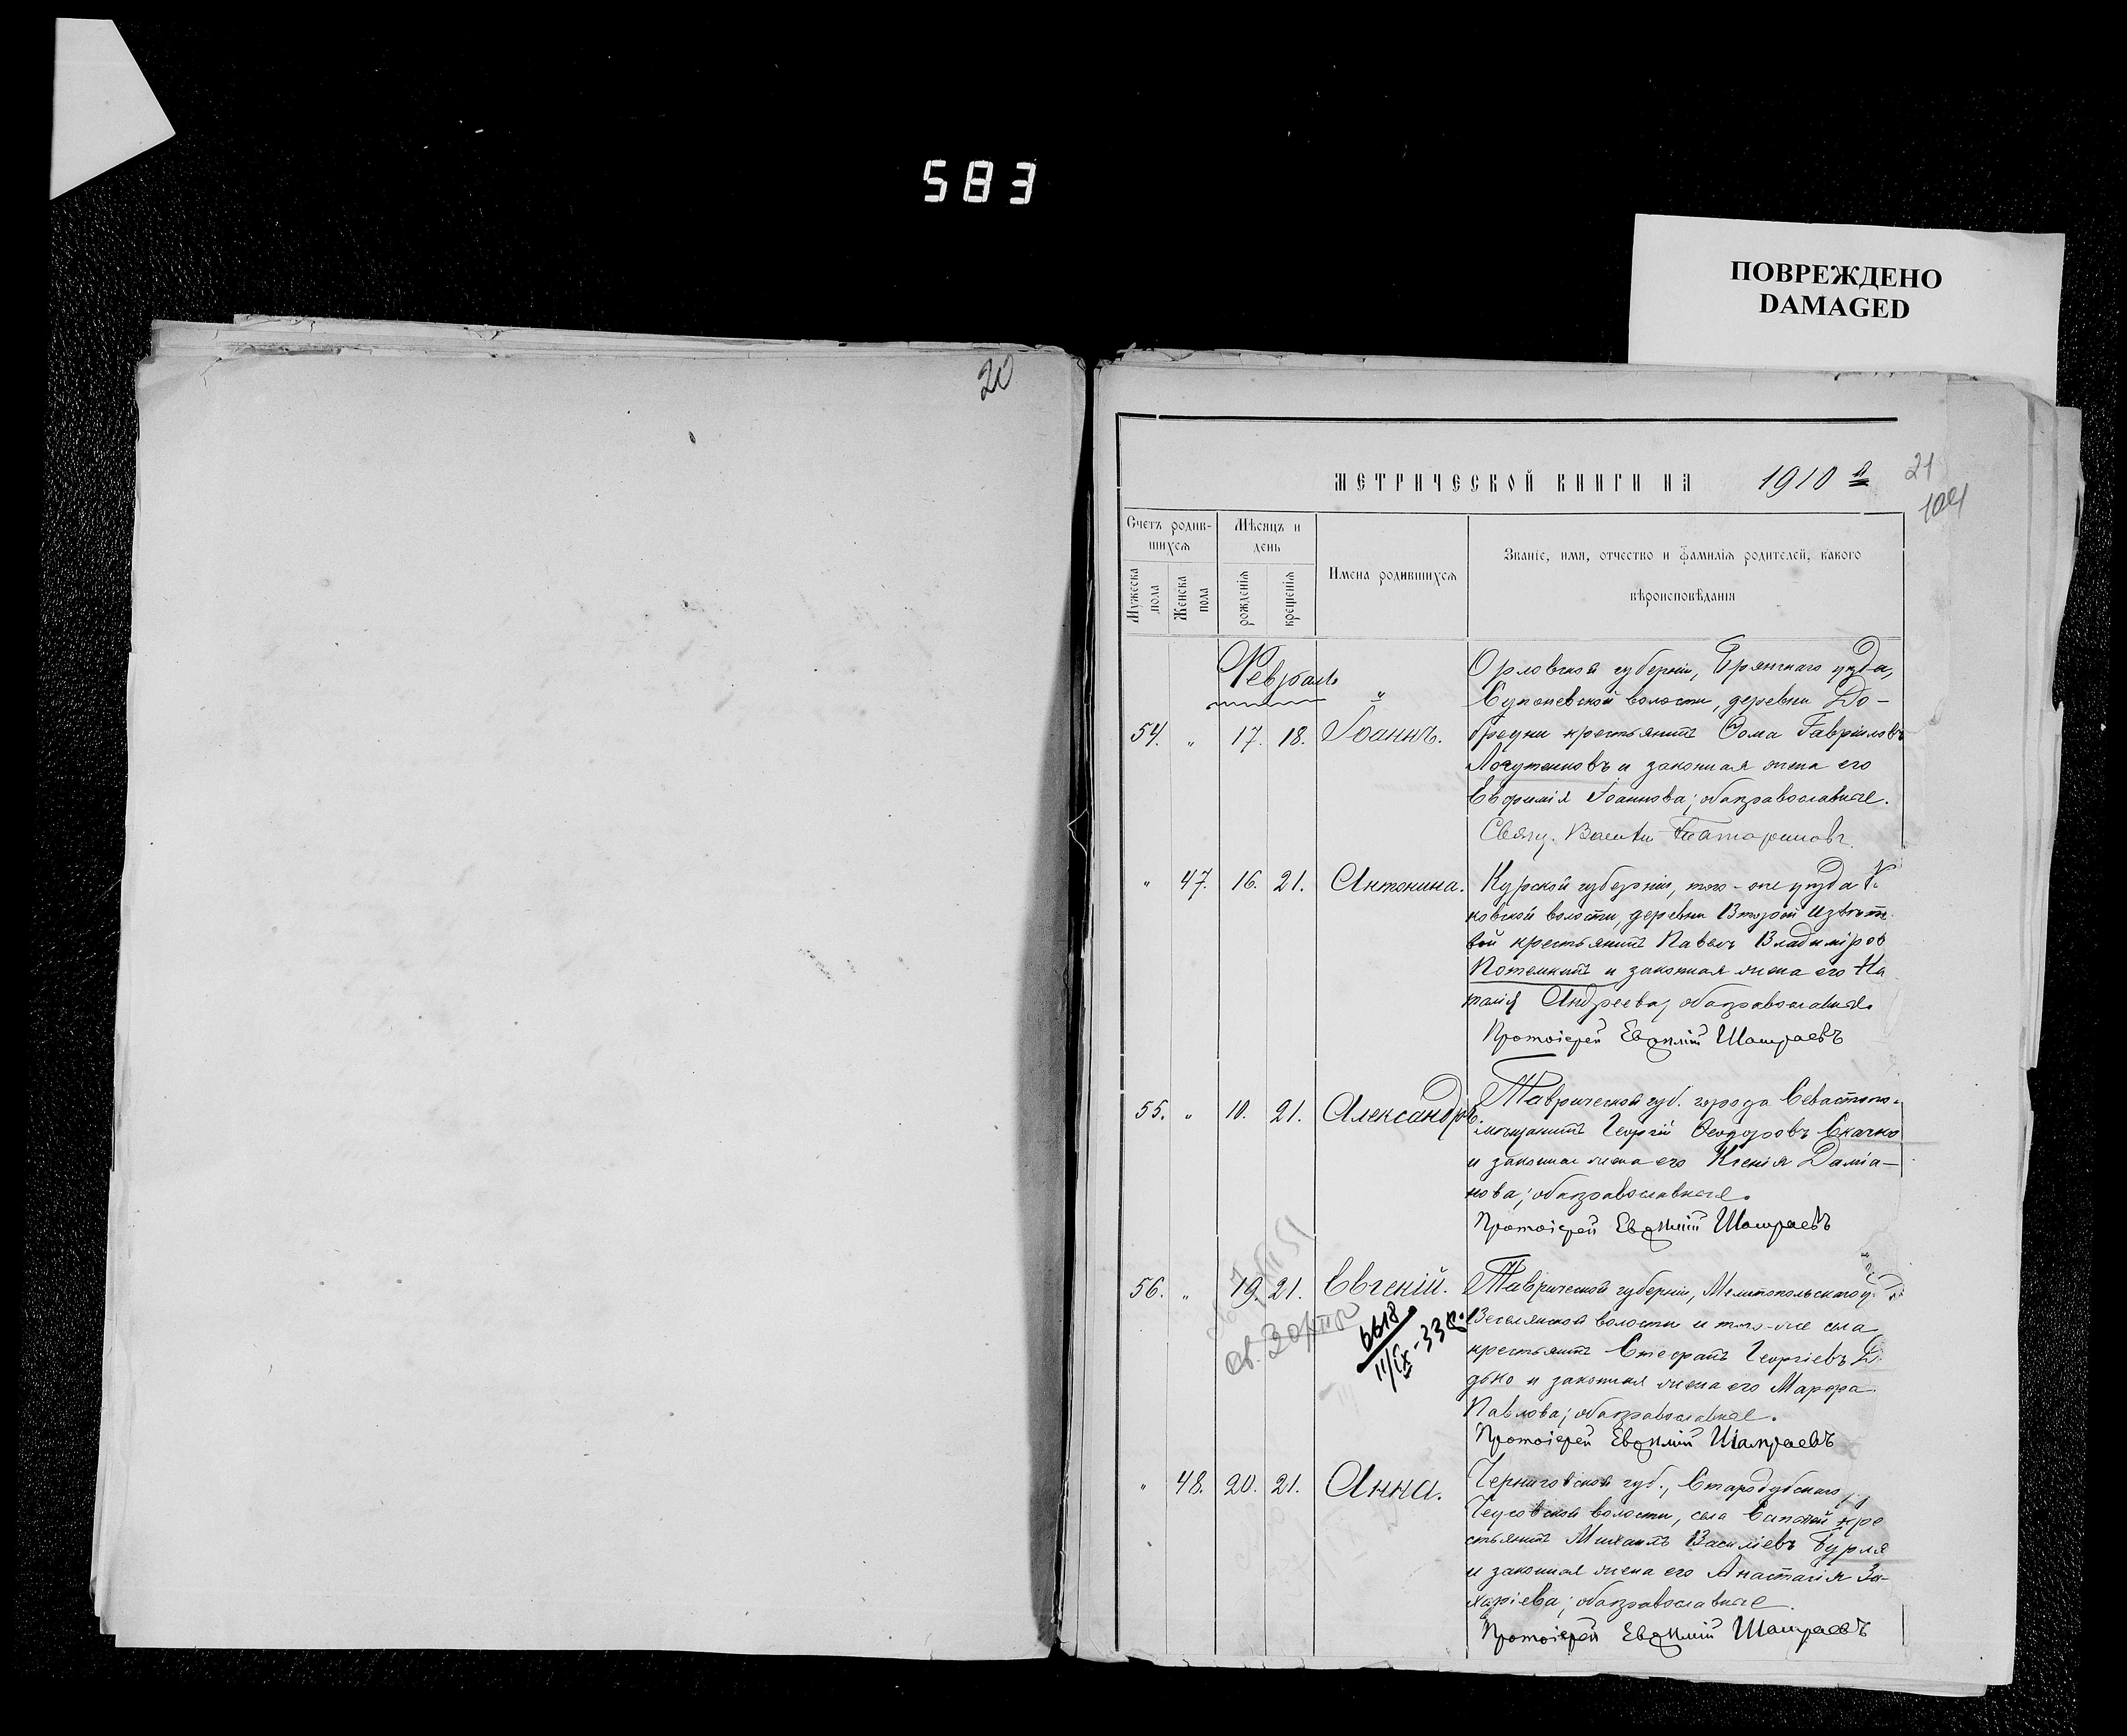 583
ПОВРЕЖДЕНО
DAMAGED
20
МЕТРИЧЕСКОЙ КНИГИ НА 1910 г.
21
104
Счетъ родив-
шихся
Мѣсяцъ и
день
Имена родившихся
Званіе, имя, отчество и фамилія родителей, какого
вѣроисповѣданія
Мужеска
пола
Женска
пола
рожденія
крещенія
Февраль
Орловской губерніи, Брянскаго уѣзда,
Супоневской волости, деревни До-
54. " 17. 18. Іоаннъ. крестьянинъ Ѳома Гавріиловъ
и законная жена его
Евфимія Іоаннова; оба православные.
Свящ. Татариновъ.
" 47. 16. 21. Антонина. Курской губерніи, того-же уѣзда
ковской волости, деревни Второй
вой крестьянинъ Павелъ Владиміров
Потемкинъ и законная жена его На
талія Андреева; оба православные.
Протоіерей Евѳимій
55. " 10. 21. Александръ. Таврической губ. города Севастопо
мѣщанинъ Георгій Ѳеодоровъ Скачко
и законная жена его Ксенія Даміа-
нова; оба православные.
Протоіерей Евѳимій
56. " 19. 21. Евгеній. Таврической губерніи, Мелитопольскаго у.
Веселянской волости и того-же села
крестьянинъ Стефанъ Георгіевъ
дько и законная жена его Марѳа
Павлова; оба православные.
Протоіерей Евѳимій
6618
11/IX-33
" 48. 20. 21. Анна. Черниговской губ., Стародубскаго
волости, села крe
стьянинъ Михаилъ Василіевъ Бурля
и законная жена его Анастасія За-
харіева; оба православные.
Протоіерей Евѳимій